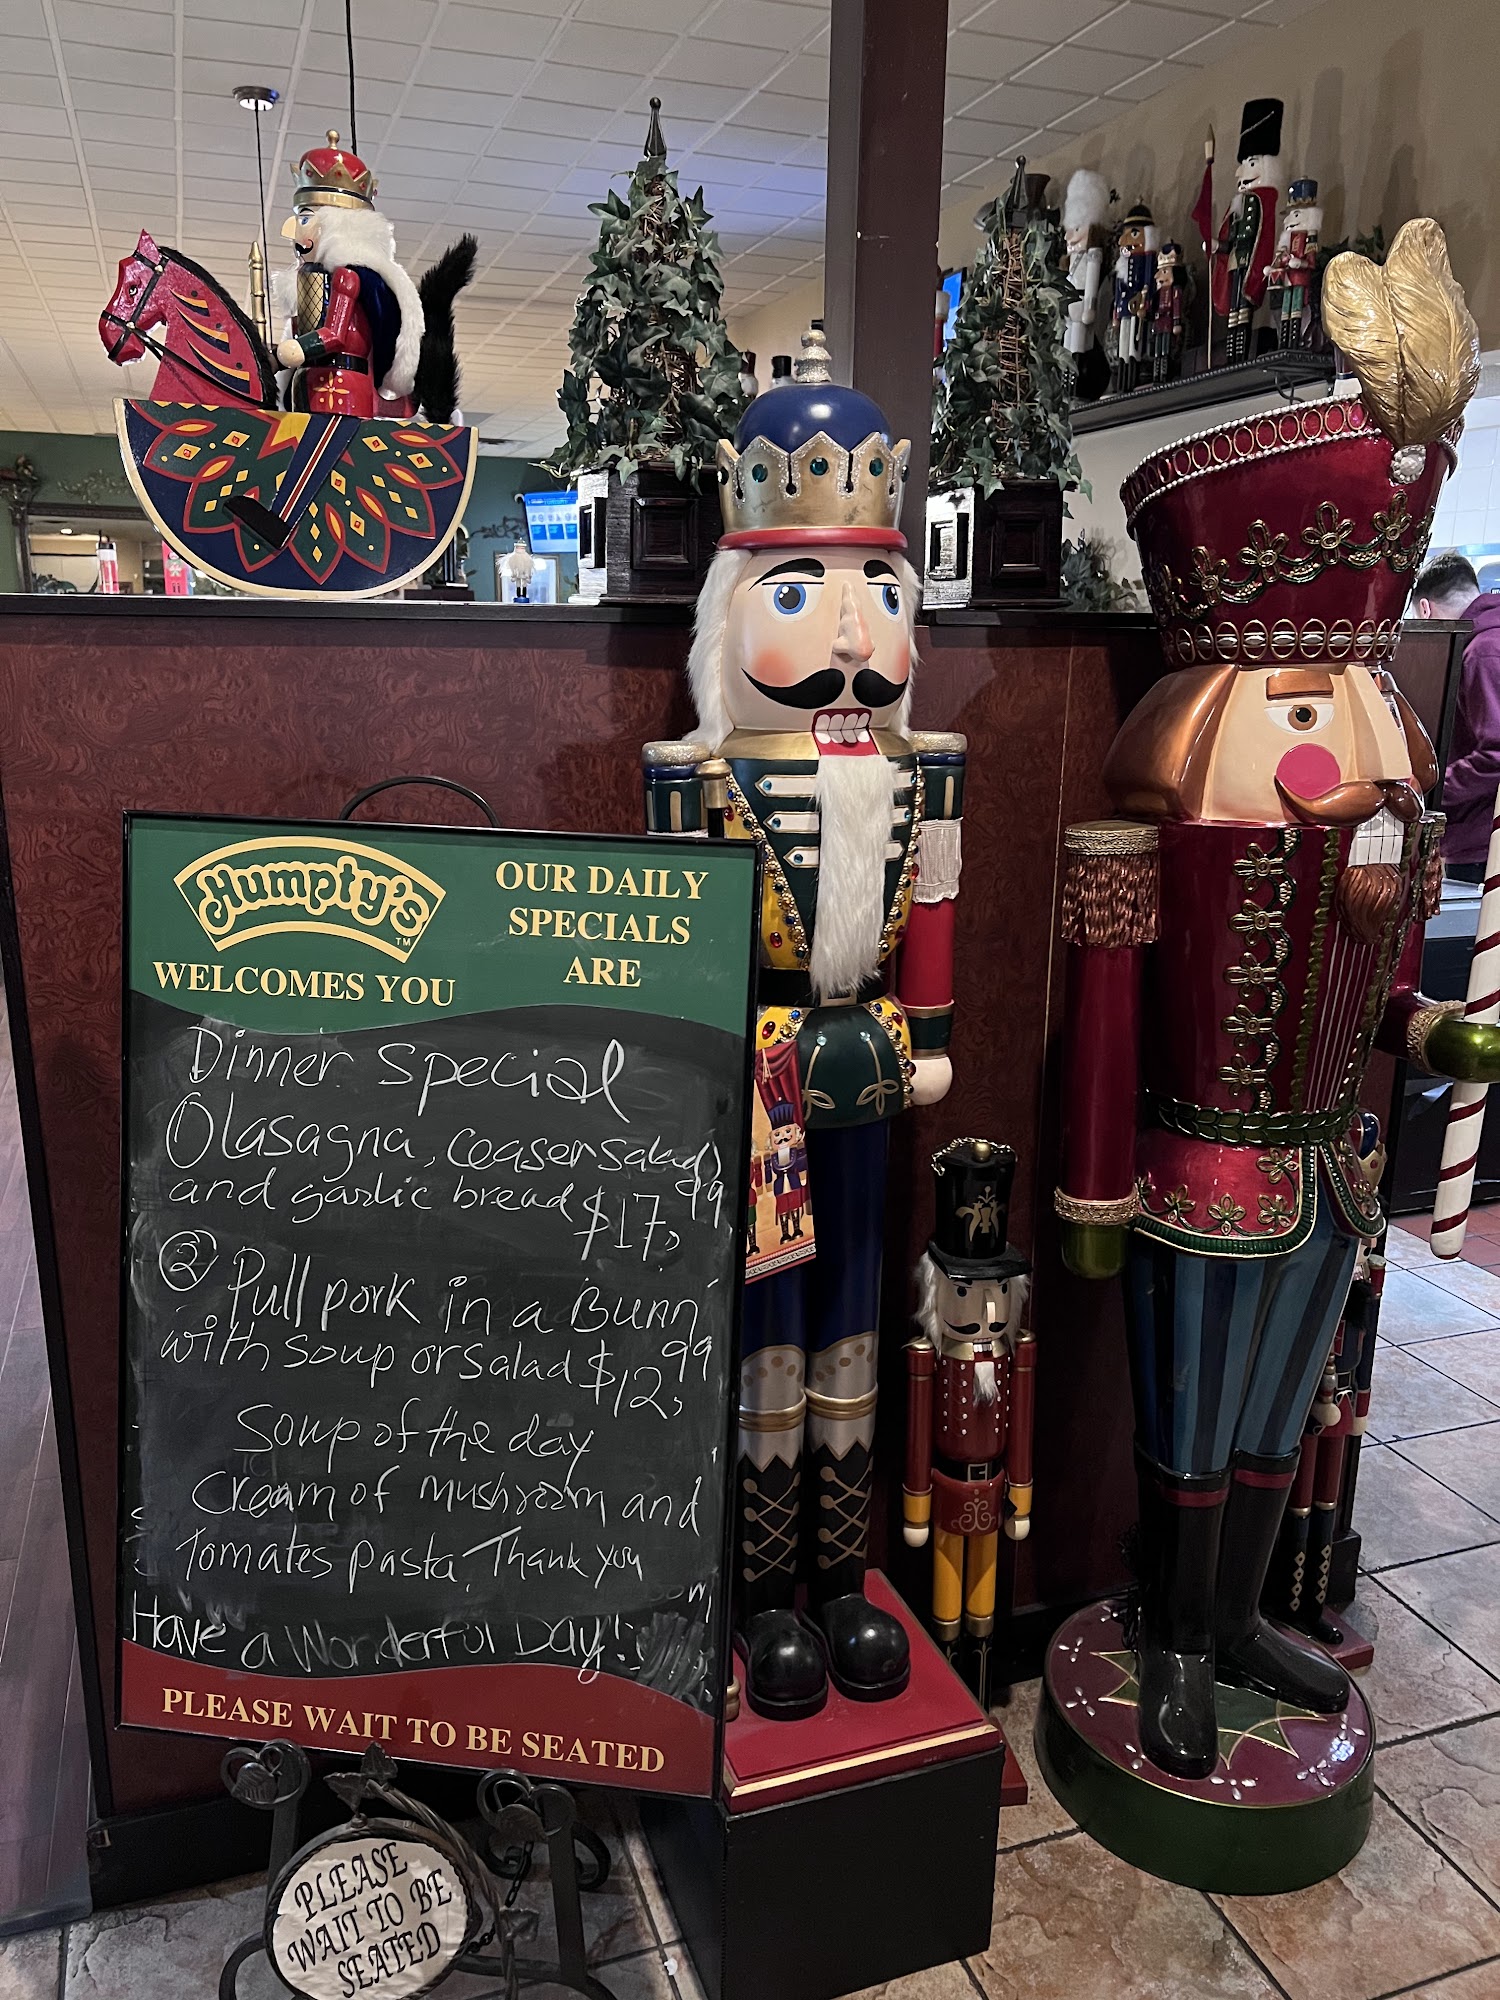 Humpty's TM
WELCOMES YOU
OUR DAILY
SPECIALS
ARE
Dinner Special
① lasagna, ceaser salad
and garlic bread $17,99
② Pull pork in a Bunn
with soup or salad $12,99
Soup of the day
Cream of mushroom and
Tomates pasta, Thank you
Have a Wonderful Day!
PLEASE WAIT TO BE SEATED
PLEASE
WAIT TO BE
SEATED